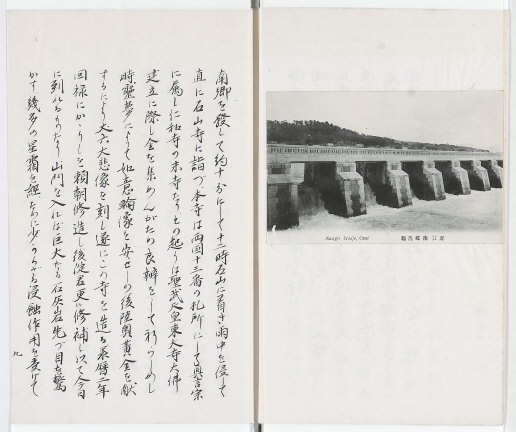 南郷を發して約十分にして十二時石山に着き雨中を侵して
直に石山寺に詣づ本寺は西國十三番の札所にして眞言宗
に屬し仁和寺の末寺たりその起りは聖武天皇東大寺大佛
建立に際し金を集めんがため良辨をして祈らしめし
時靈夢によりて如意輪像を安せしの後陸奥黄金を献
するにより丈六大悲像を刻し遂にこの寺を造る承暦二年
回禄にかゝりしを頼朝修造し後淀君更に修補し以て今日
に到れるものなり山門を入れば巨大なる石灰岩先づ目を驚
かす幾多の星霜を經ために少からざる浸蝕作用を受けて
九
Nango Araije, Omi
近江 南郷洗堰